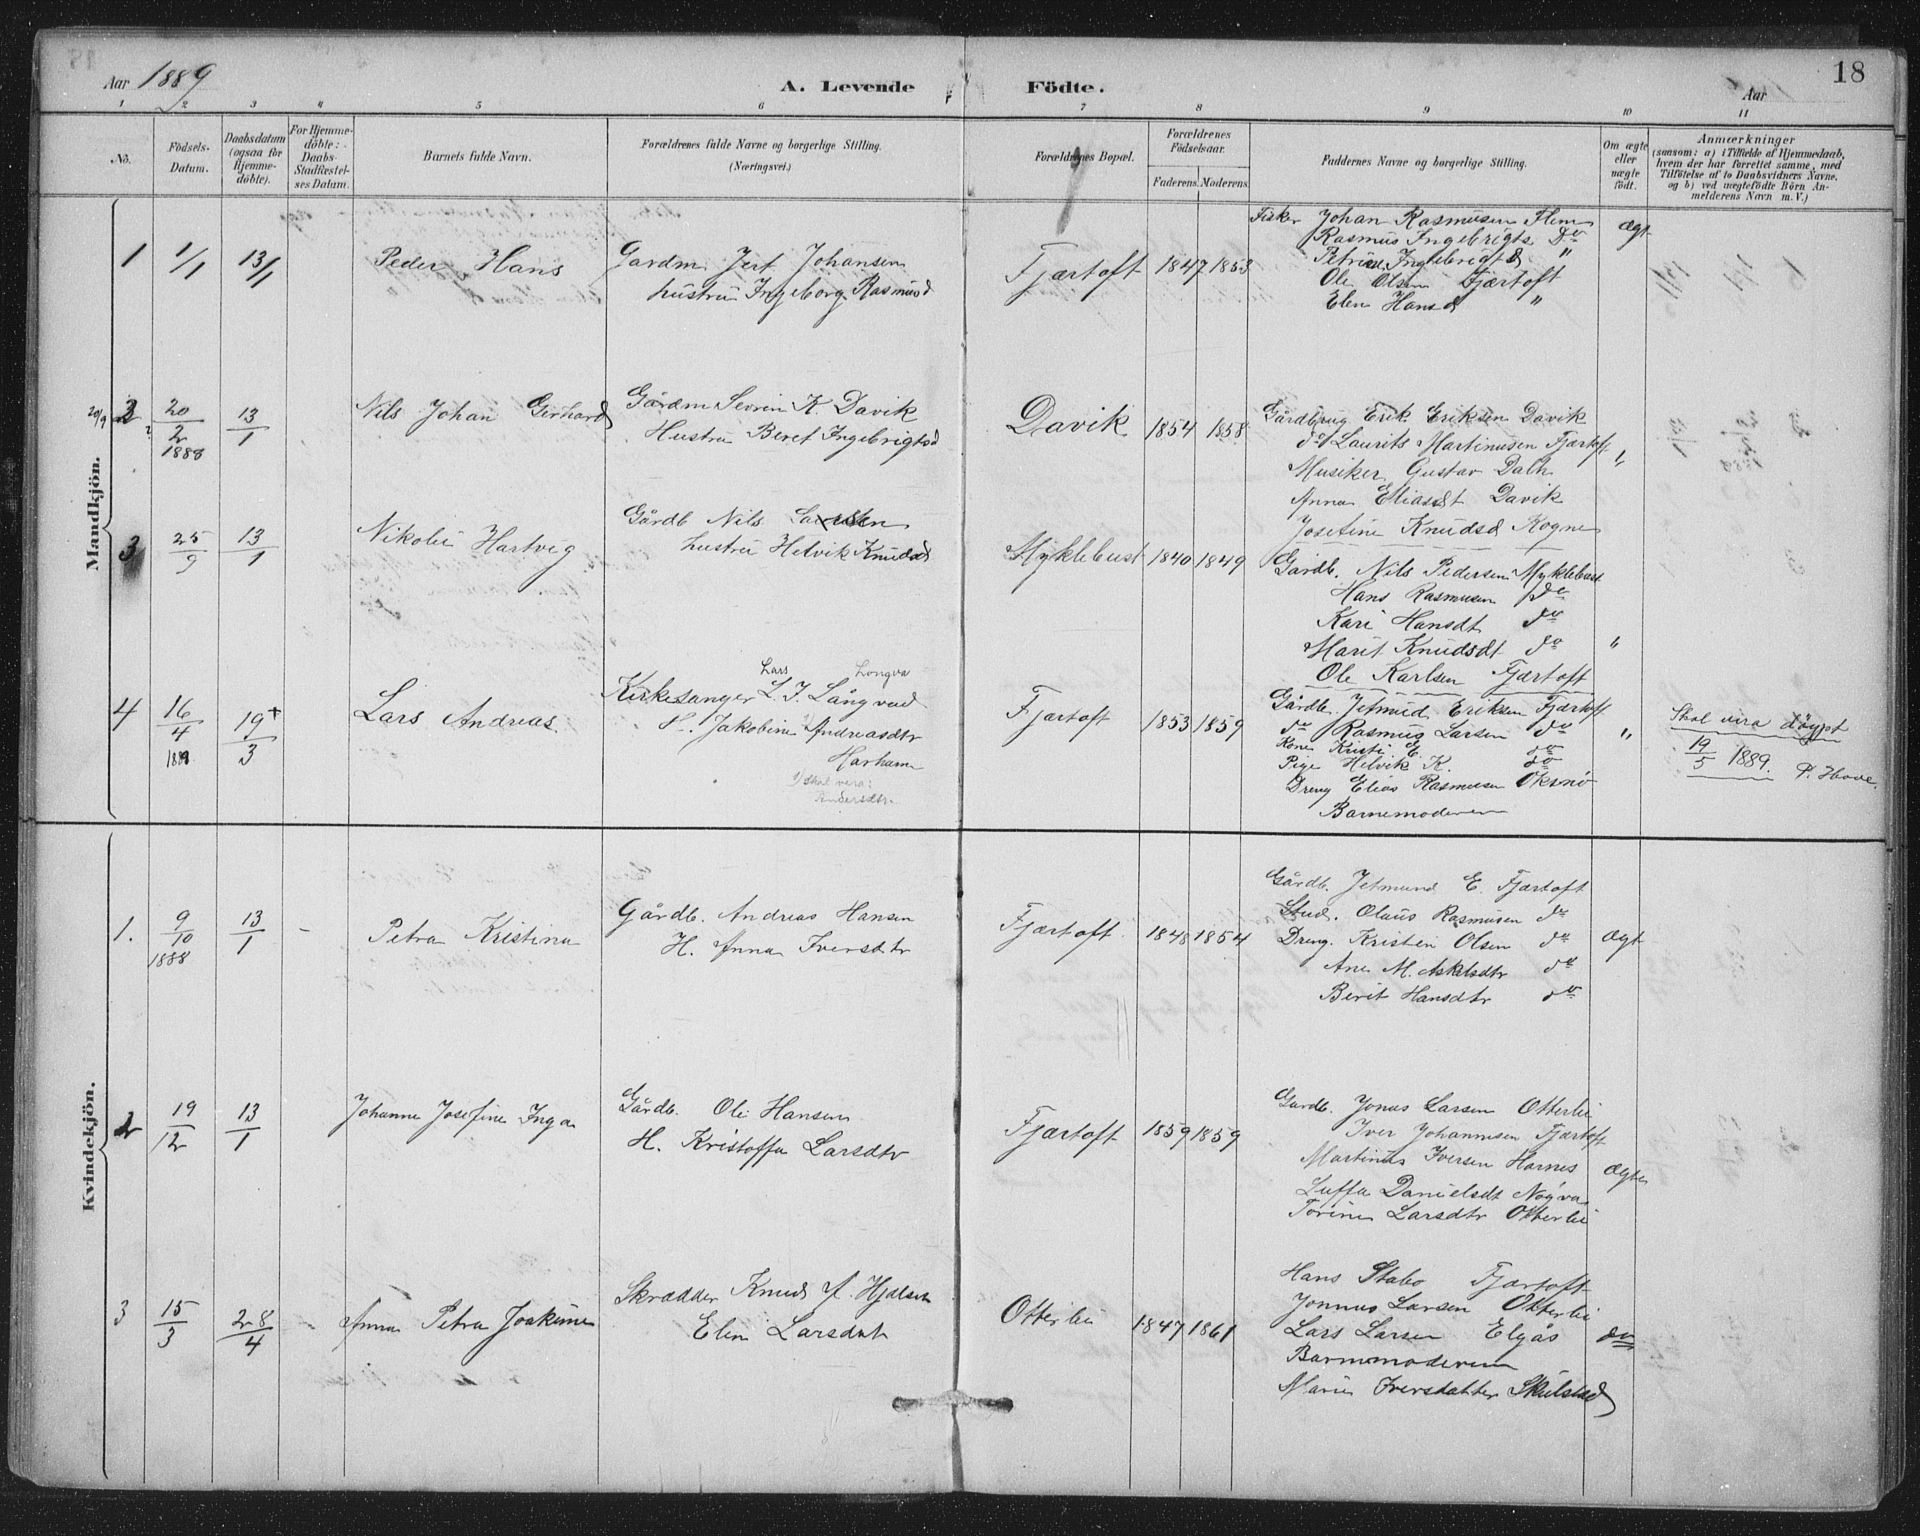 Aar 1889
A. Levende Födte.
Aar
18
1 2 3 4 5 6 7 8 9 10 11
No.
Födsels-Datum.
Daabsdatum (ogsaa for Hjemme-döbte).
For Hjemme-döbte: Daabs-Stadfæstel-ses Datum.
Barnets fulde Navn.
Forældrenes fulde Navne og borgerlige Stilling. (Næringsvei.)
Forældrenes Bopæl.
Forældrenes Födselsaar.
Faderens. Moderens.
Faddernes Navne og borgerlige Stilling.
Om ægte eller uægte födt.
Anmærkninger
(saasom: a) i Tilfælde af Hjemmedaab,
hvem der har forrettet samme, med
Tilföielse af to Daabsvidners Navne,
og b) ved uægtefödte Börn An-
melderens Navn m. V.)
Mandkjön.
1 1/1 13/1 Peder Hans
Gardm Jert Johansen
hustru Ingeborg Rasmusd
Fjærtoft 1847 1853
Fisker Johan Rasmusen Flem
Rasmus Ingebrigts do
Petrine Ingebrigtd "
Ole Olsen Fjærtoft
Elen Hansd "
Ægt
20/9 2 20/2 1888 13/1 Nils Johan Gerhard
Gårdm Sevrin K. Davik
Hustru Beret Ingebrigtsd
Davik 1854 1858
Gårdbrug Erik Eriksen Davik
do Laurits Martinusen Fjærtoft
Musiker Gustav Dalh
Anna Eliasdt Davik
Josefine Knudsd Rogne
"
3 25/9 13/1 Nikolai Hartvig
Gårdb Nils Larsen
hustru Helvik Knudsd
Myklebust 1840 1849
Gårdb. Nils Pedersen Myklebust
Hans Rasmusen do
Kari Hansdt do
Marit Knudsdt do
Ole Karlsen Fjærtoft
"
4 16/4 1889 19+/3 Lars Andreas
Lars Longva
Kirkesanger L. J. Långvad
H. Jakobine Andreasdtr
Harham
Skal vera:
Andersdtr.
Fjærtoft 1853 1859
Gårdb. Jetmud Eriksen Fjærtoft
do Rasmus Larsen do
Kone Kristi E. do
Pige Helvik K. do
Dreng Elias Rasmusen Oksnø
Barnemoderen
"
Skal vera döypt
19/5 1889.
P. Hove.
Kvindekjön.
1. 9/10 1888 13/1 - Petra Kristina
Gårdb. Andreas Hansen
H. Anna Iversdtr
Fjærtoft 1848 1854
Gårdb. Jetmund E. Fjærtoft
Stud. Olaus Rasmusen do
Dreng. Kristen Olsen do
Ane M. Askelsdtr do
Berit Hansdtr do
Ægt
2 19/12 13/1 Johanne Josefine Inga
Gårdb. Ole Hansen
H. Kristoffa Larsdtr
Fjærtoft 1859 1859
Gardb. Jonas Larsen Otterlei
Iver Johannesen Fjærtoft
Martinus Iversen Harnes
Luffa Danielsdt Nogva
Torine Larsdtr Otterlei
Ægte
3 15/3 28/4 - Anna Petra Joakime
Skrædder Knud A. Hjelsen
Elen Larsdat
Otterlei 1847 1861
Hans Stabo Fjærtoft
Jonnus Larsen Otterlei
Lars Larsen Elgås
Barnemoderen
Marie Iversdatter Skulstad
do